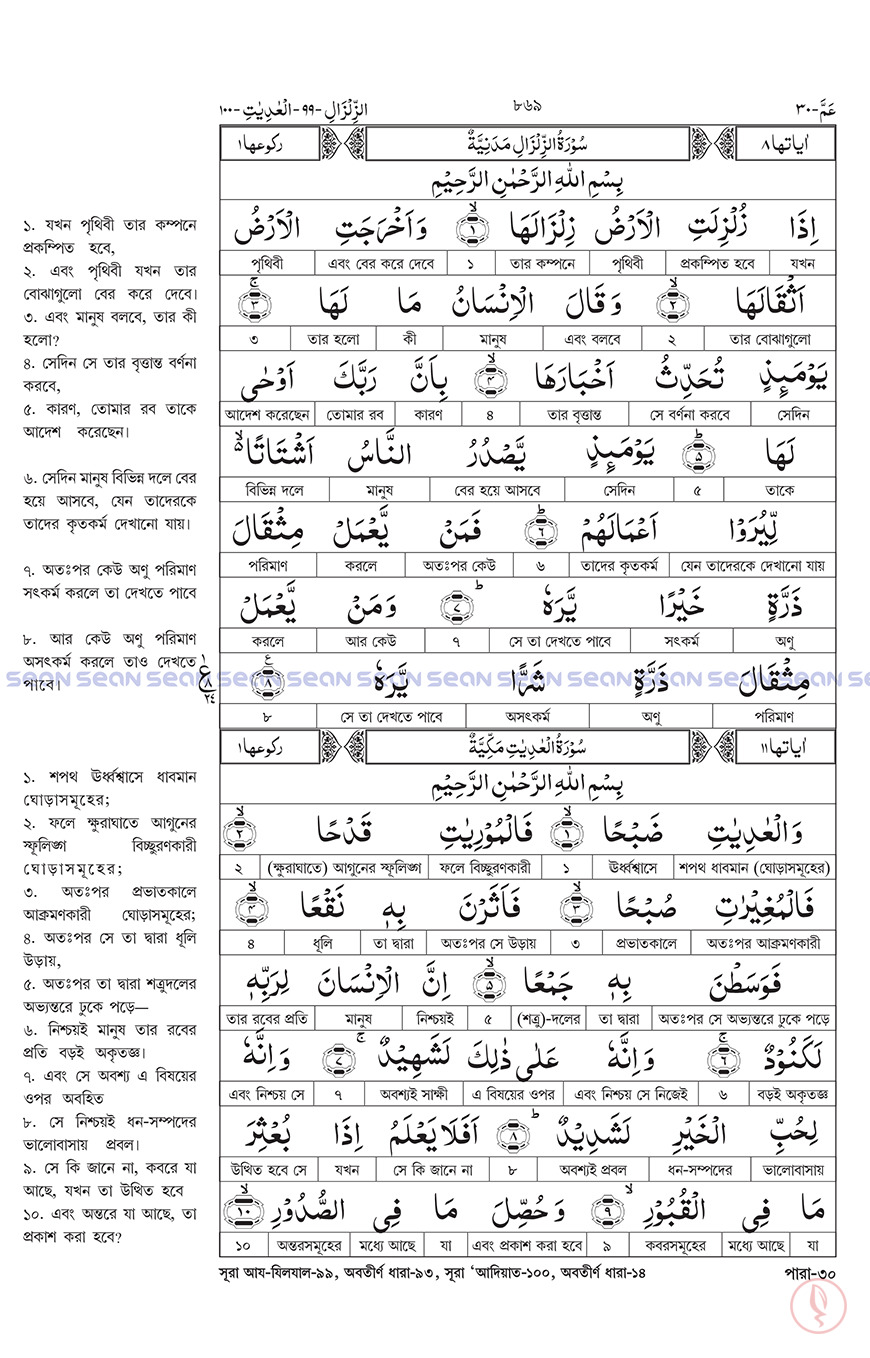 اَلزِّلْزَالِ-٩٩-اَلْعٰدِيٰتِ-١٠٠
৮৬৯
عَمَّ-٣٠
اٰيَاتُهَا ٨
سُوْرَةُ الزِّلْزَالِ مَدَنِيَّةٌ
رَكُوْعُهَا ١
بِسْمِ اللهِ الرَّحْمٰنِ الرَّحِيْمِ
اِذَا زُلْزِلَتِ الْاَرْضُ زِلْزَالَهَا ١ وَاَخْرَجَتِ الْاَرْضُ
যখন প্রকম্পিত হবে পৃথিবী তার কম্পনে ১ এবং বের করে দেবে পৃথিবী
اَثْقَالَهَا ٢ وَقَالَ الْاِنْسَانُ مَا لَهَا ٣
তার বোঝাগুলো ২ এবং বলবে মানুষ কী তার হলো ৩
يَوْمَئِذٍ تُحَدِّثُ اَخْبَارَهَا ٤ بِاَنَّ رَبَّكَ اَوْحٰى
সেদিন সে বর্ণনা করবে তার বৃত্তান্ত ৪ কারণ তোমার রব আদেশ করেছেন
لَهَا ٥ يَوْمَئِذٍ يَّصْدُرُ النَّاسُ اَشْتَاتًا
তাকে ৫ সেদিন বের হয়ে আসবে মানুষ বিভিন্ন দলে
لِّيُرَوْا اَعْمَالَهُمْ ٦ فَمَنْ يَّعْمَلْ مِثْقَالَ
যেন তাদেরকে দেখানো যায় তাদের কৃতকর্ম ৬ অতঃপর কেউ করলে পরিমাণ
ذَرَّةٍ خَيْرًا يَّرَهٗ ٧ وَمَنْ يَّعْمَلْ
অণু সৎকর্ম সে তা দেখতে পাবে ৭ আর কেউ করলে
مِثْقَالَ ذَرَّةٍ شَرًّا يَّرَهٗ ٨
পরিমাণ অণু অসৎকর্ম সে তা দেখতে পাবে ৮
১. যখন পৃথিবী তার কম্পনে
প্রকম্পিত হবে,
২. এবং পৃথিবী যখন তার
বোঝাগুলো বের করে দেবে।
৩. এবং মানুষ বলবে, তার কী
হলো?
৪. সেদিন সে তার বৃত্তান্ত বর্ণনা
করবে,
৫. কারণ, তোমার রব তাকে
আদেশ করেছেন।
৬. সেদিন মানুষ বিভিন্ন দলে বের
হয়ে আসবে, যেন তাদেরকে
তাদের কৃতকর্ম দেখানো যায়।
৭. অতঃপর কেউ অণু পরিমাণ
সৎকর্ম করলে তা দেখতে পাবে
৮. আর কেউ অণু পরিমাণ
অসৎকর্ম করলে তাও দেখতে
পাবে।
sean sean sean sean sean sean sean sean sean sean sean sean
اٰيَاتُهَا ١١
سُوْرَةُ الْعٰدِيٰتِ مَكِّيَّةٌ
رَكُوْعُهَا ١
بِسْمِ اللهِ الرَّحْمٰنِ الرَّحِيْمِ
وَالْعٰدِيٰتِ ضَبْحًا ١ فَالْمُوْرِيٰتِ قَدْحًا ٢
শপথ ধাবমান (ঘোড়াসমূহের) ঊর্ধ্বশ্বাসে ১ ফলে বিচ্ছুরণকারী (ক্ষুরাঘাতে) আগুনের স্ফূলিঙ্গ ২
فَالْمُغِيْرٰتِ صُبْحًا ٣ فَاَثَرْنَ بِهٖ نَقْعًا ٤
অতঃপর আক্রমণকারী প্রভাতকালে ৩ অতঃপর সে উড়ায় তা দ্বারা ধূলি ৪
فَوَسَطْنَ بِهٖ جَمْعًا ٥ اِنَّ الْاِنْسَانَ لِرَبِّهٖ
অতঃপর সে অভ্যন্তরে ঢুকে পড়ে তা দ্বারা (শত্রু)-দলের ৫ নিশ্চয়ই মানুষ তার রবের প্রতি
لَكَنُوْدٌ ٦ وَاِنَّهٗ عَلٰى ذٰلِكَ لَشَهِيْدٌ ٧ وَاِنَّهٗ
বড়ই অকৃতজ্ঞ ৬ এবং নিশ্চয় সে নিজেই এ বিষয়ের ওপর অবশ্যই সাক্ষী ৭ এবং নিশ্চয় সে
لِحُبِّ الْخَيْرِ لَشَدِيْدٌ ٨ اَفَلَا يَعْلَمُ اِذَا بُعْثِرَ
ভালোবাসায় ধন-সম্পদের অবশ্যই প্রবল ৮ সে কি জানে না যখন উত্থিত হবে সে
مَا فِى الْقُبُوْرِ ٩ وَحُصِّلَ مَا فِى الصُّدُوْرِ ١٠
যা মধ্যে আছে কবরসমূহের ৯ এবং প্রকাশ করা হবে যা মধ্যে আছে অন্তরসমূহের ১০
১. শপথ ঊর্ধ্বশ্বাসে ধাবমান
ঘোড়াসমূহের;
২. ফলে ক্ষুরাঘাতে আগুনের
স্ফূলিঙ্গ বিচ্ছুরণকারী
ঘোড়াসমূহের;
৩. অতঃপর প্রভাতকালে
আক্রমণকারী ঘোড়াসমূহের;
৪. অতঃপর সে তা দ্বারা ধূলি
উড়ায়,
৫. অতঃপর তা দ্বারা শত্রুদলের
অভ্যন্তরে ঢুকে পড়ে—
৬. নিশ্চয়ই মানুষ তার রবের
প্রতি বড়ই অকৃতজ্ঞ।
৭. এবং সে অবশ্য এ বিষয়ের
ওপর অবহিত
৮. সে নিশ্চয়ই ধন-সম্পদের
ভালোবাসায় প্রবল।
৯. সে কি জানে না, কবরে যা
আছে, যখন তা উত্থিত হবে
১০. এবং অন্তরে যা আছে, তা
প্রকাশ করা হবে?
সূরা আয-যিলযাল-৯৯, অবতীর্ণ ধারা-৯৩, সূরা ‘আদিয়াত-১০০, অবতীর্ণ ধারা-১৪
পারা-৩০